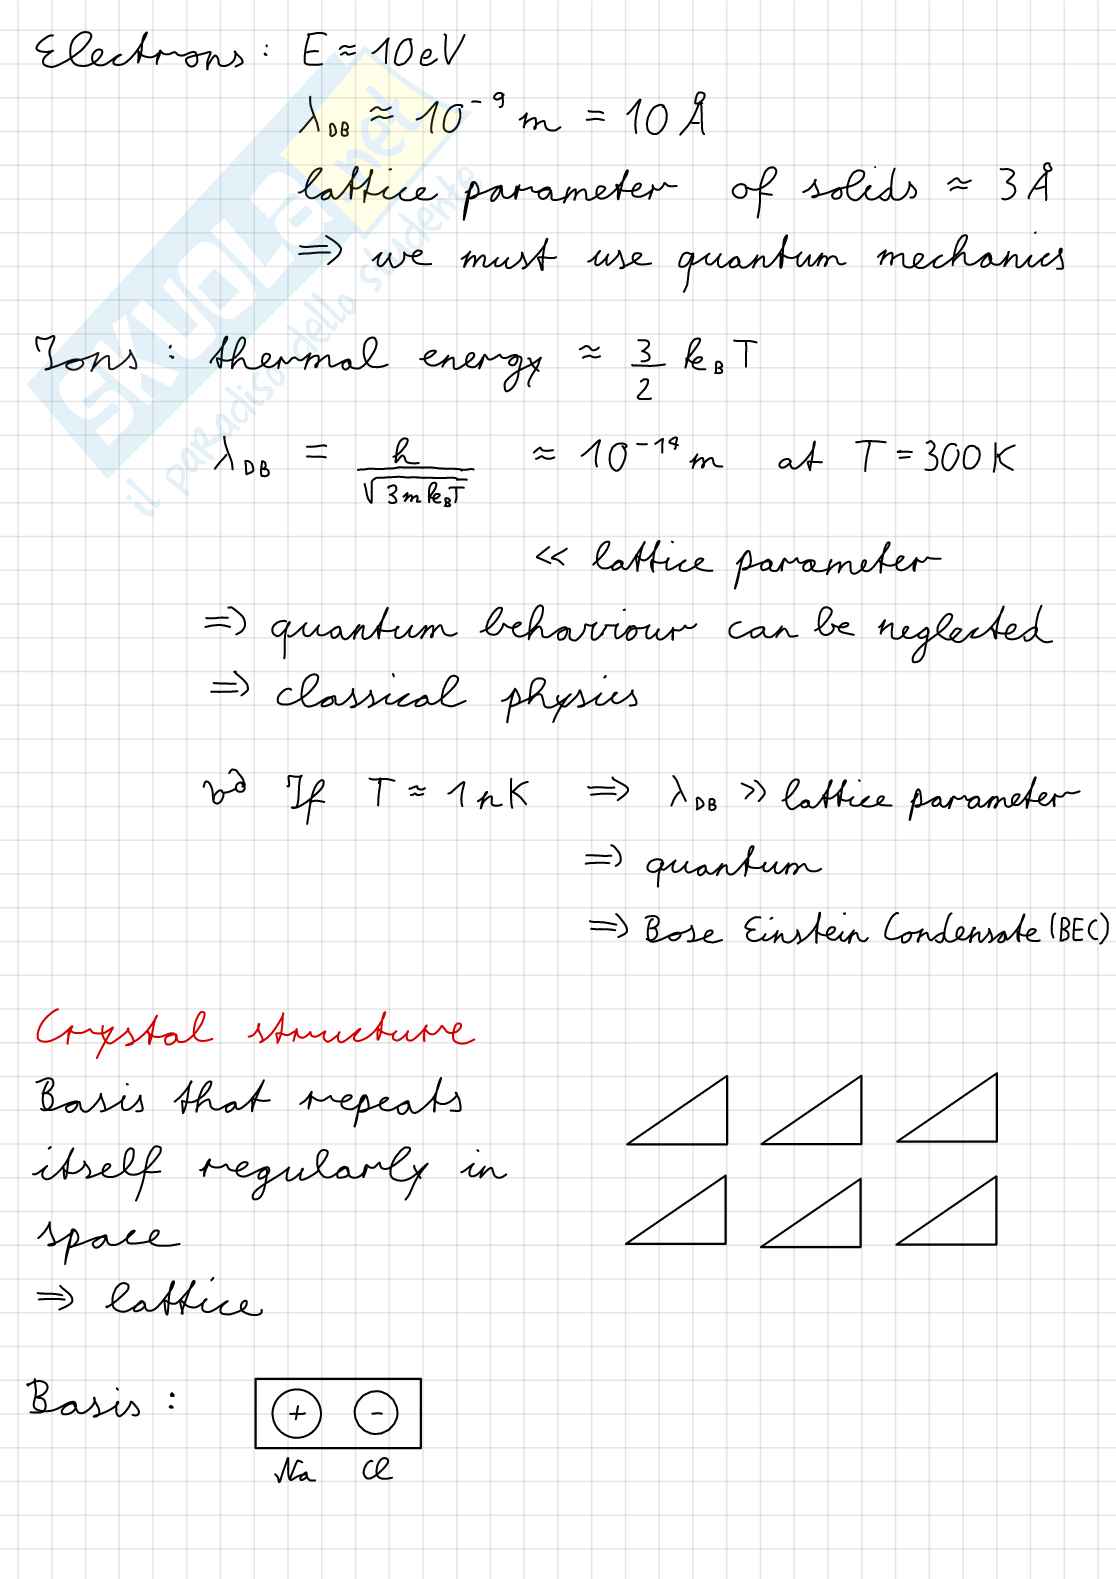 Electrons: E ≈ 10eV
λ_DB ≈ 10^-9 m = 10 Å
lattice parameter of solids ≈ 3 Å
⇒ we must use quantum mechanics
Ions: thermal energy ≈ 3/2 k_B T
λ_DB = h/√(3mk_BT) ≈ 10^-14 m at T = 300 K
<< lattice parameter
⇒ quantum behaviour can be neglected
⇒ classical physics
If T ≈ 1nK ⇒ λ_DB >> lattice parameter
⇒ quantum
⇒ Bose Einstein Condensate (BEC)
Crystal structure
Basis that repeats
itself regularly in
space
⇒ lattice
Basis:
+ -
Na Cl
SKUOLA.net
il paradiso dello studente